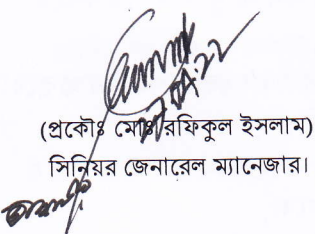 (প্রকৌঃ মোঃ রফিকুল ইসলাম)
সিনিয়র জেনারেল ম্যানেজার।